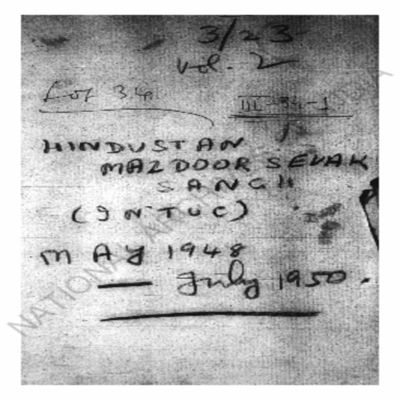 3/23
Vol. 2
Lot 34
III-34-1
HINDUSTAN
MAZDOOR SEVAK
SANGH
(INTUC)
MAY 1948
— July 1950.
NATIONAL ARCHIVES OF INDIA